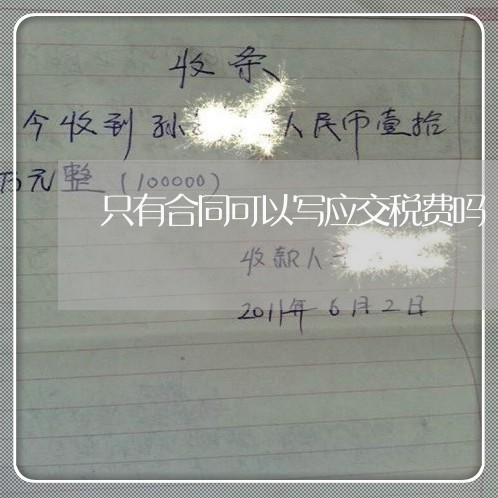 收条
今收到孙 人民币壹拾
万元整（100000）
只有合同可以写应交税费吗
收款人
2011年6月2日